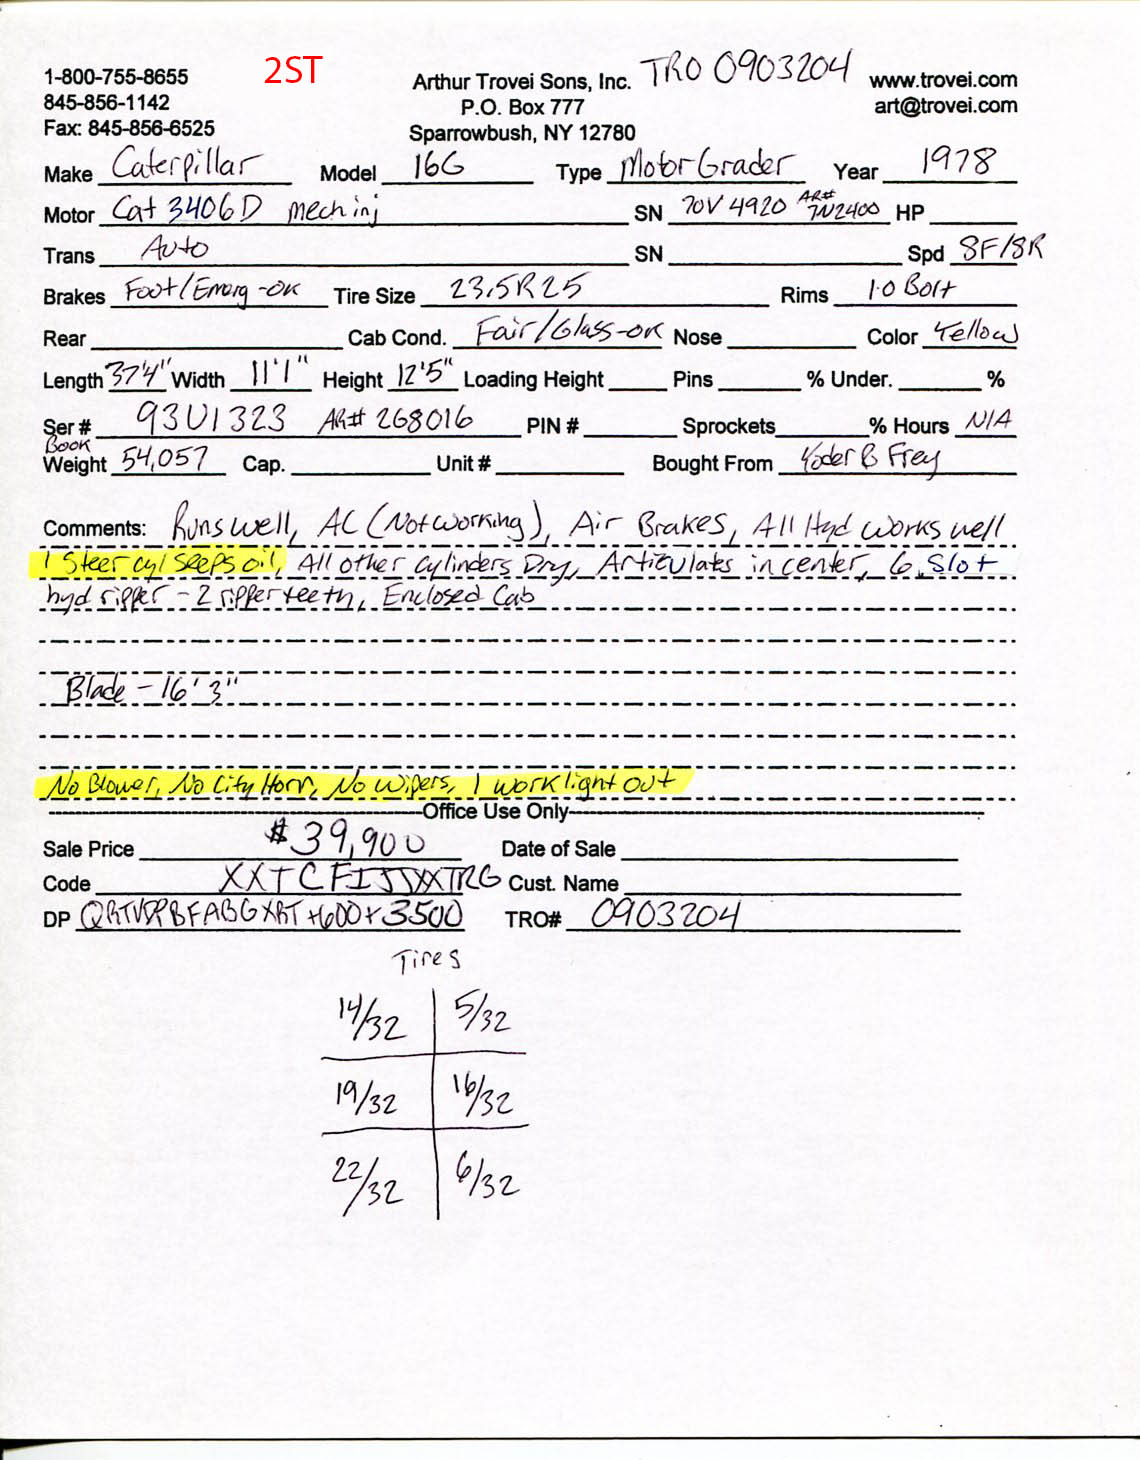 1-800-755-8655 2ST Arthur Trovei Sons, Inc. TRO 0903204 www.trovei.com
845-856-1142 P.O. Box 777 art@trovei.com
Fax: 845-856-6525 Sparrowbush, NY 12780
Make Caterpillar Model 16G Type Motor Grader Year 1978
Motor Cat 3406D mech inj SN 70V4920 AR# 7N2400 HP
Trans Auto SN Spd 8F/8R
Brakes Foot/Emerg-ok Tire Size 23.5R25 Rims 10 Bolt
Rear Cab Cond. Fair/Glass-ok Nose Color Yellow
Length 37'4" Width 11'1" Height 12'5" Loading Height Pins % Under. %
Ser # 93U1323 AR# 268016 PIN # Sprockets % Hours N/A
Book
Weight 54,057 Cap. Unit # Bought From Yoder B Frey
Comments: Runs well, AC (Not working), Air Brakes, All Hyd works well
1 Steer cyl seeps oil, All other cylinders Dry, Articulates in center, 6 Slot
hyd ripper - 2 ripper teeth, Enclosed Cab
Blade - 16' 3"
No Blower, No City Horn, No Wipers, 1 work light out
Office Use Only
Sale Price $39,900 Date of Sale
Code XXTCFIJJXXTRG Cust. Name
DP +600+3500 TRO# 0903204
Tires
14/32 5/32
19/32 16/32
22/32 6/32